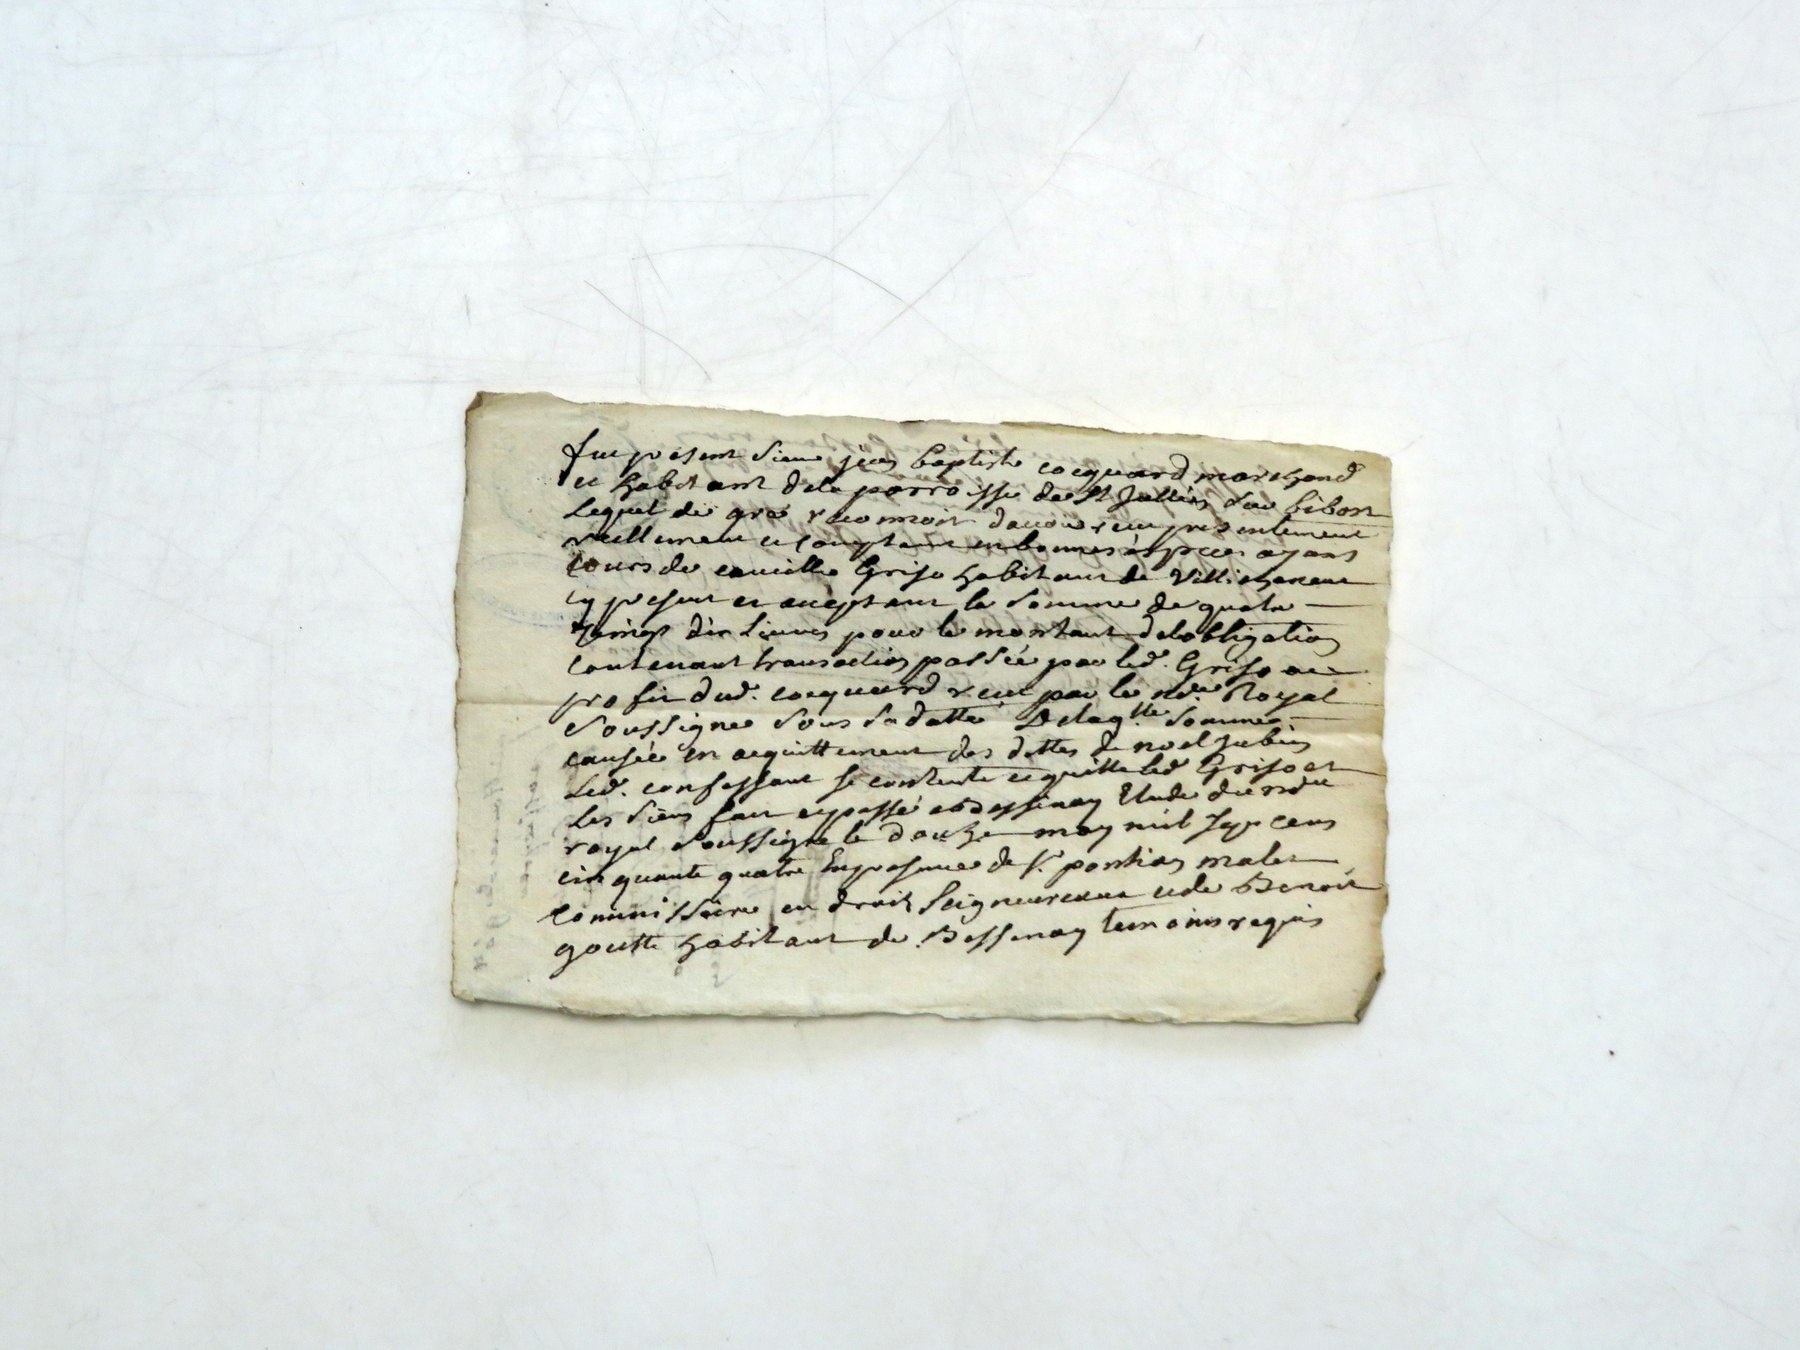 fut present Sieur jean baptiste cocquard marchand
et habitant de la parroisse de St Jullien Sur bibost
Lequel de gré reconnoit davoir reçu presentement
reellement et comptant en bonnes espèces ayans
cours de Grijo habitant de
cy present et acceptant la Somme de quatre
vingt dix Livres pour le montant delobligation
contenant transaction passée par led. Grijo au
profit dud. cocquard reçue par le nore Royal
Soussigné Sous Sa datte Delaqlle Somme
causée en acquittement des dettes de noel Jubin
Led. confessant se contente et quitte led Grijo et
les Siens fait et passé a Bessenay Etude du nore
royal Soussigné le douze may mil Sept cens
cinquante quatre En presence de Sr. malet
Commissaire en droit Seigneuriaux et de Benoit
goutte habitant de Bessenay temoins requis